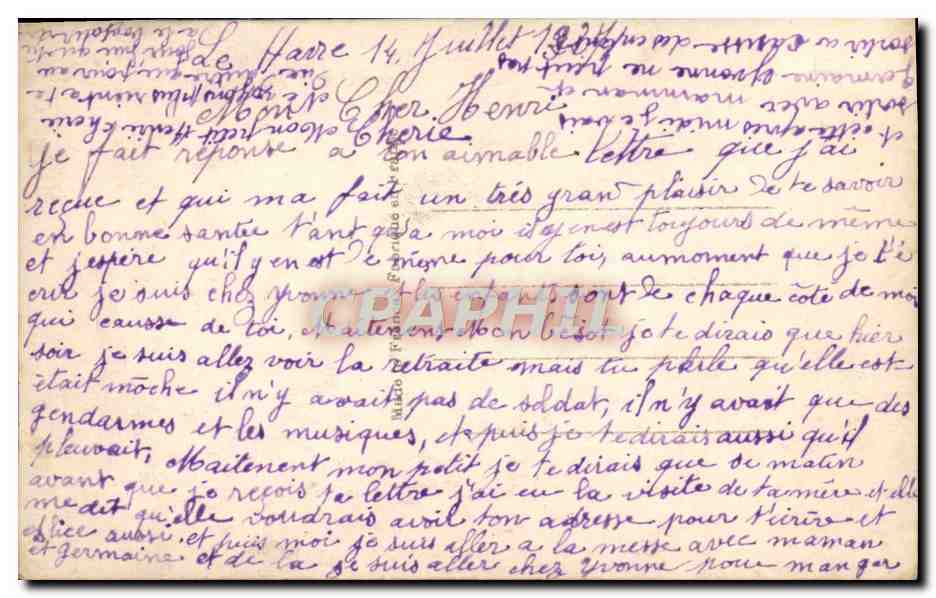 Le Havre 14 Juillet 19
Mon Cher Henri
Cherie
je fait réponse a ton aimable lettre que j'ai
reçue et qui ma fait un trés gran plaisir de te savoir
en bonne santée t'ant qu'a moi il y en est toujours de même
et j'espère qu'il y en est de même pour toi, au moment que je t'é
crir je suis chez Yvonne et la enfants sont de chaque côté de moi
qui causse de toi, Maitenent Mon bésot je te dirais que hier
soir je suis allez voir la retraite mais tu parle qu'elle est
était moche il n'y avait pas de soldat, il n'y avait que des
gendarmes et les musiques, et puis je te dirais aussi qu'il
pleuvait, Maitenent mon petit je te dirais que se matin
avant que je reçois ta lettre j'ai eu la visite de ta mère et elle
me dit qu'elle voudrais avoir ton adresse pour t'ecrire et
Alice aussi, et puis moi je suis aller a la messe avec maman
et Germaine et de la je suis aller chez Yvonne pour manger
et cette après midi je vais
sortir avec mamman et
Germaine Yvonne ne peut pas
sortir a causse des
Made in France Fabriqué en France
CPAPHIL